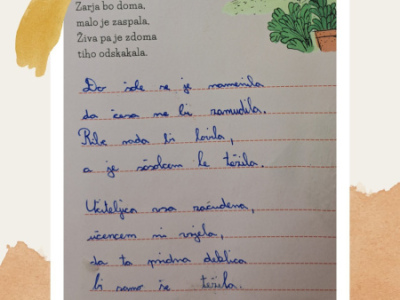 Zarja bo doma,
malo je zaspala,
Živa pa je zdoma
tiho odskakala.
Do šole se je namenila
da česa ne bi zamudila.
Ribe rada bi lovila,
a je sošolcem le težila.
Učiteljica vsa začudena,
učencem ni verjela,
da ta pridna deklica
bi samo še težila.